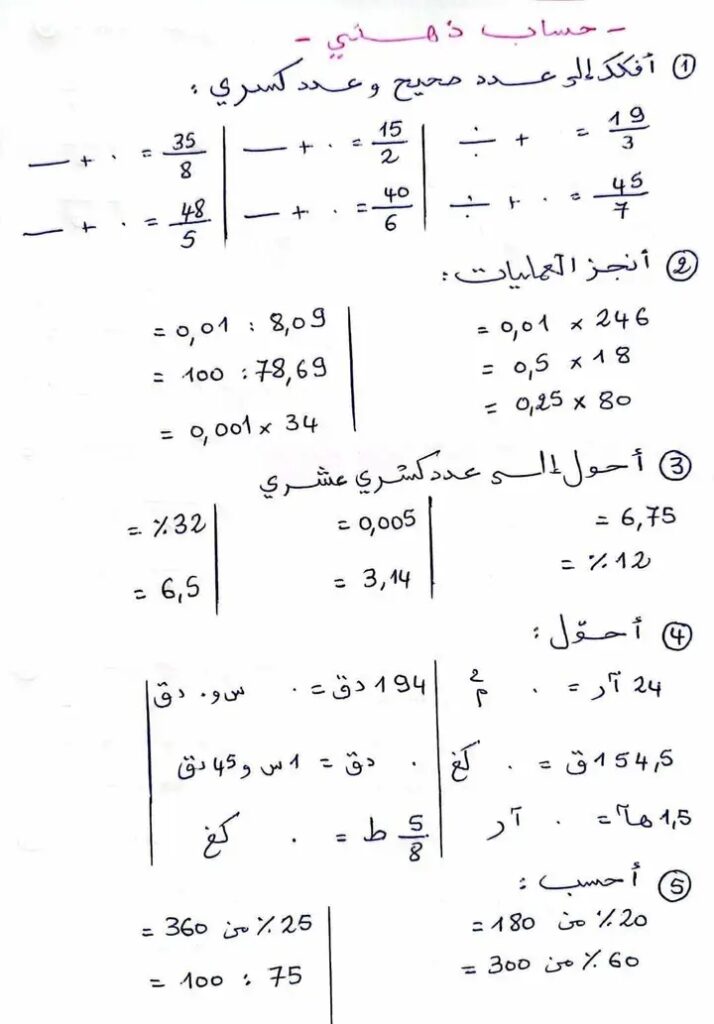 - حساب ذهني -
① أفكك إلى عدد صحيح و عدد كسري :
19/3 = . + ـ | 15/2 = . + ـ | 35/8 = . + ـ
45/7 = . + ـ | 40/6 = . + ـ | 48/5 = . + ـ
② أنجز العمليات :
246 × 0,01 = | 8,09 : 0,01 =
18 × 0,5 = | 78,69 : 100 =
80 × 0,25 = | 34 × 0,001 =
③ أحول إلى عدد كسري عشري
6,75 = | 0,005 = | 32٪ =
12٪ = | 3,14 = | 6,5 =
④ أحوّل :
24 آر = . م² | 194 دق = . س و . دق
154,5 ق = . كغ | . دق = 1 س و 45 دق
1,5 هآ = . آر | 5/8 ط = . كغ
⑤ أحسب :
20٪ من 180 = | 25٪ من 360 =
60٪ من 300 = | 75 : 100 =